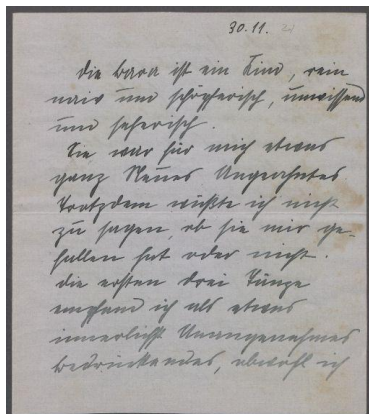 30.11. 21
die Bara ist ein Kind, rein
naiv und schöpferisch, unwissend
und seherisch.
Sie war für mich etwas
ganz Neues Ungeahntes
Trotzdem wüßte ich nicht
zu sagen, ob sie mir ge-
fallen hat oder nicht.
die ersten drei Tänze
empfand ich als etwas
innerlichst Unangenehmes
bedrückendes, obwohl ich